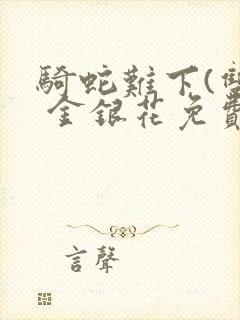 騎蛇難下(雙
金銀花免費
言聲